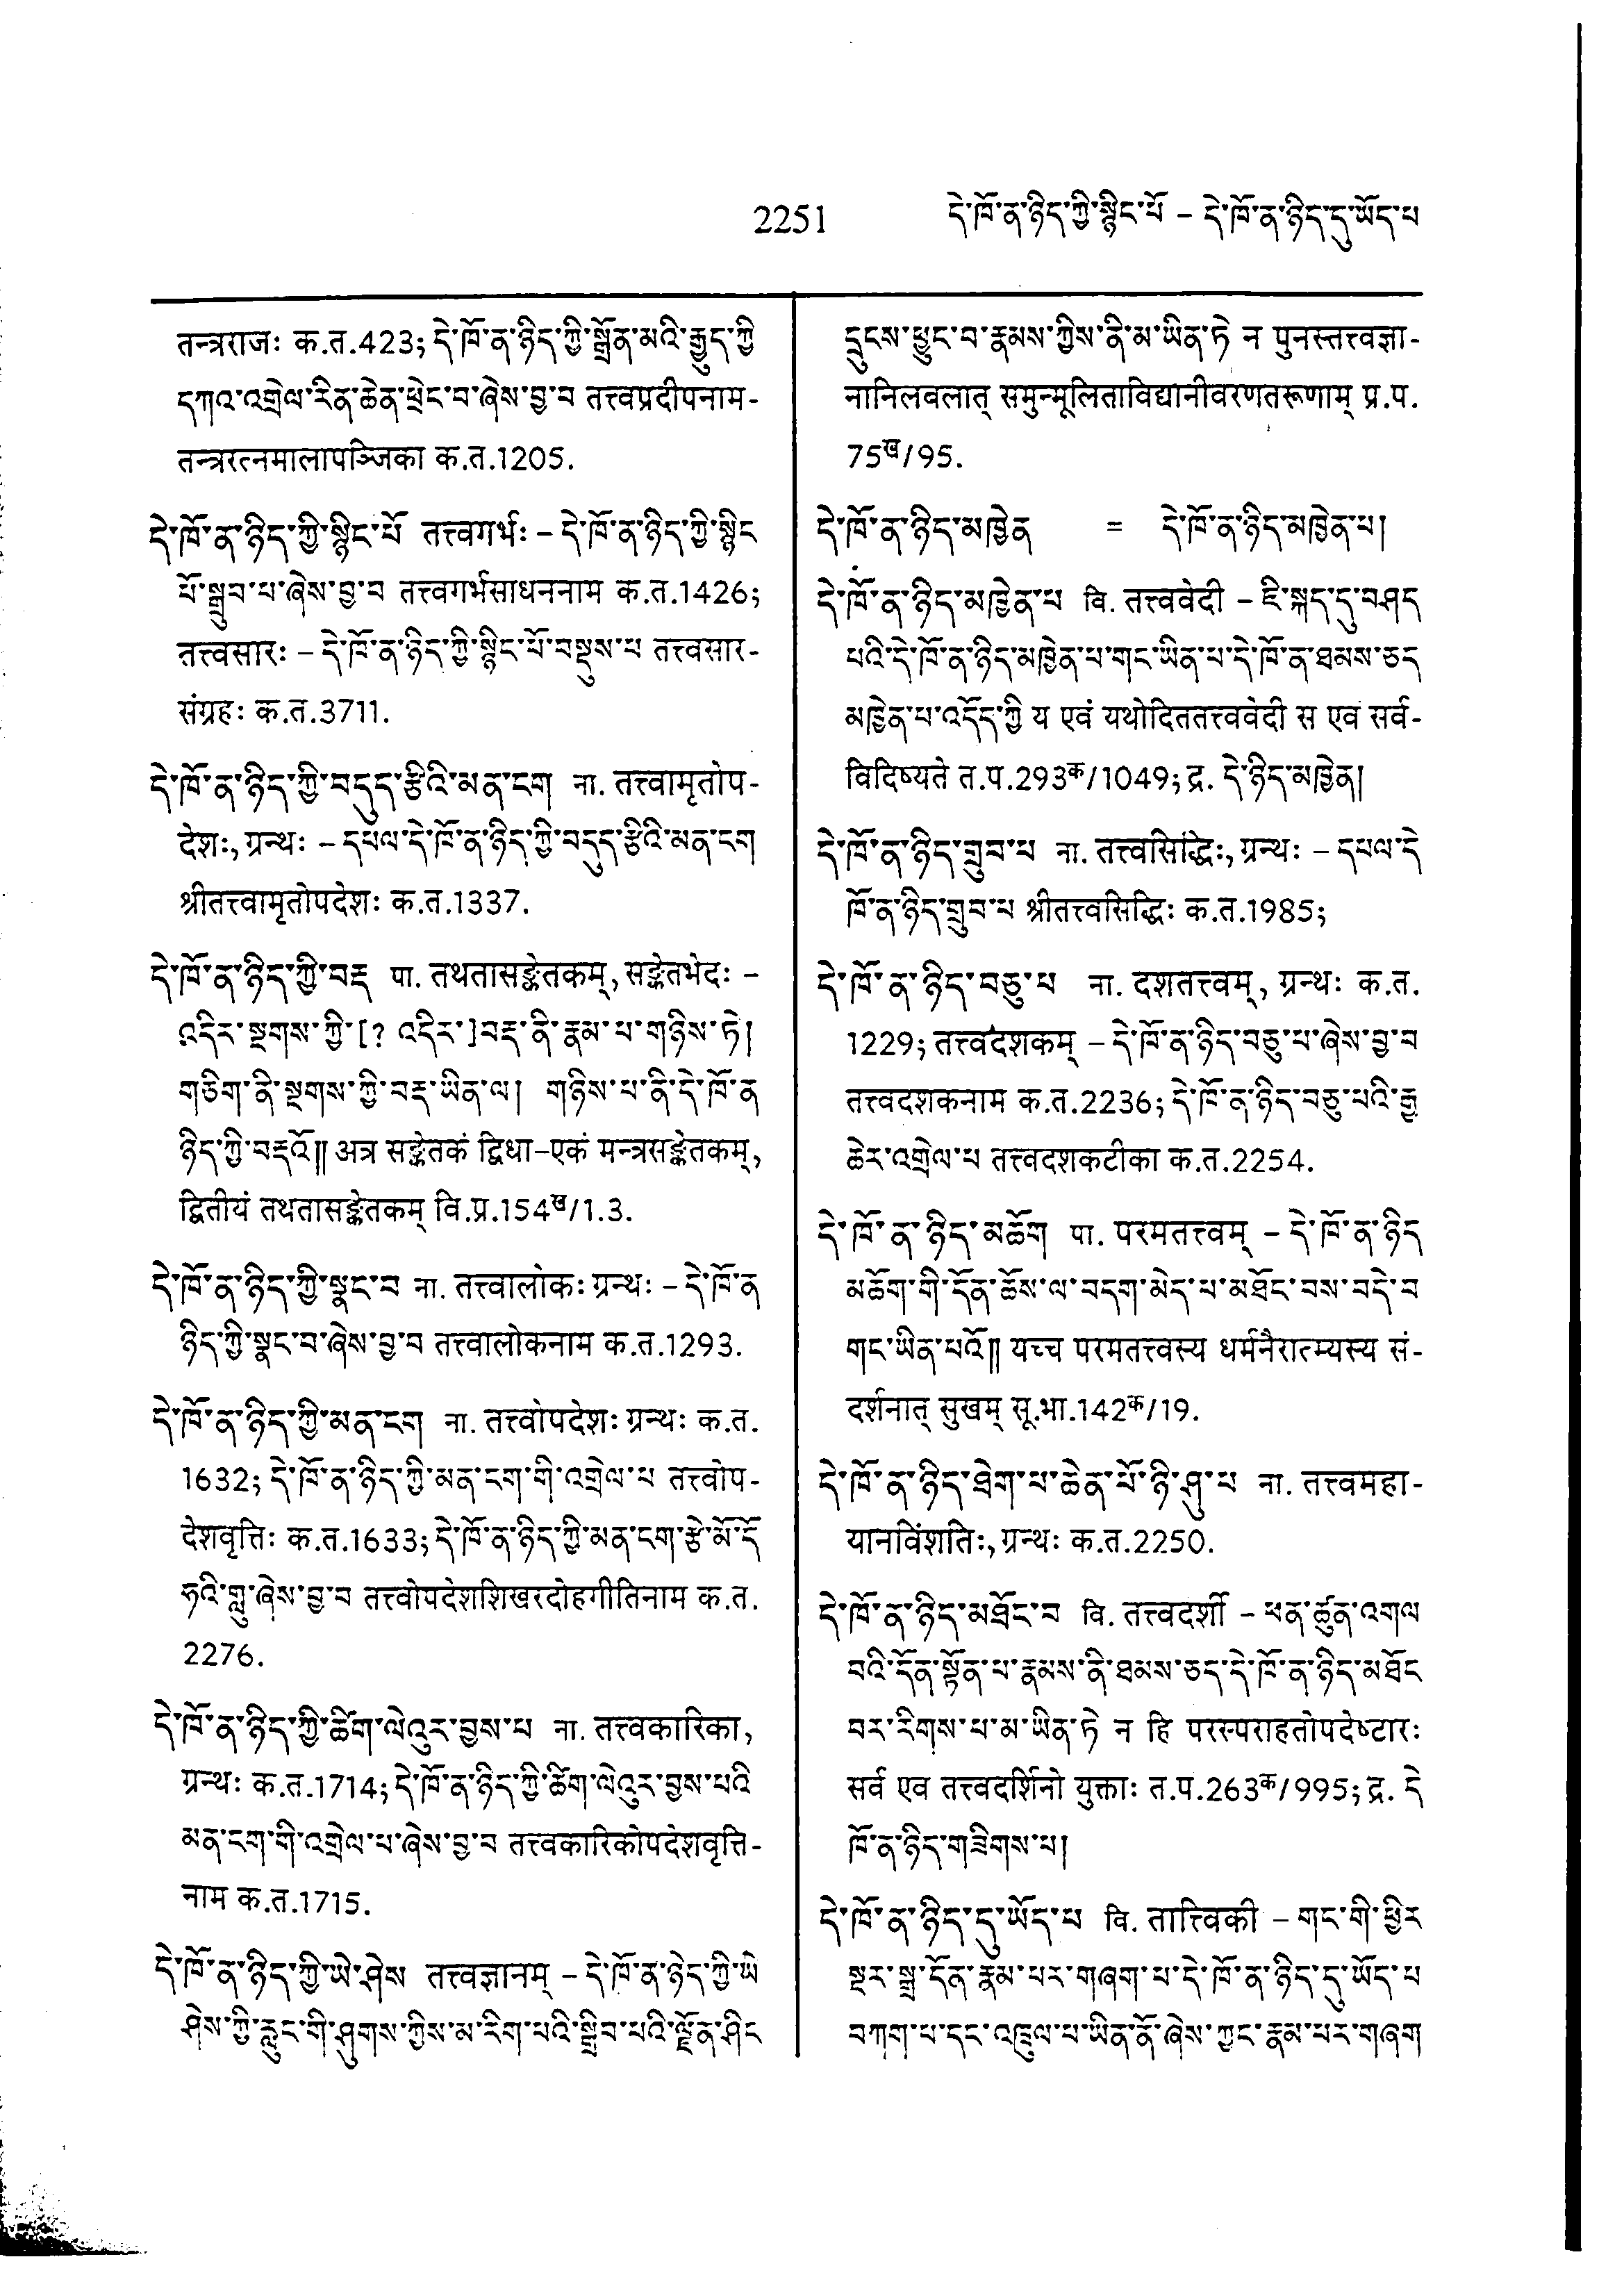 2251 དེ་ཁོ་ན་ཉིད་ཀྱི་སྙིང་པོ – དེ་ཁོ་ན་ཉིད་དུ་ཡོད་པ
तन्त्रराजः क.त.423; དེ་ཁོ་ན་ཉིད་ཀྱི་སྒྲོན་མའི་རྒྱུད་ཀྱི
དཀའ་འགྲེལ་རིན་ཆེན་ཕྲེང་བ་ཞེས་བྱ་བ तत्त्वप्रदीपनाम-
तन्त्ररत्नमालापञ्जिका क.त.1205.
དེ་ཁོ་ན་ཉིད་ཀྱི་སྙིང་པོ तत्त्वगर्भः – དེ་ཁོ་ན་ཉིད་ཀྱི་སྙིང
པོ་སྒྲུབ་པ་ཞེས་བྱ་བ तत्त्वगर्भसाधननाम क.त.1426;
तत्त्वसारः – དེ་ཁོ་ན་ཉིད་ཀྱི་སྙིང་པོ་བསྡུས་པ तत्त्वसार-
संग्रहः क.त.3711.
དེ་ཁོ་ན་ཉིད་ཀྱི་བདུད་རྩིའི་མན་ངག ना. तत्त्वामृतोप-
देशः, ग्रन्थः – དཔལ་དེ་ཁོ་ན་ཉིད་ཀྱི་བདུད་རྩིའི་མན་ངག
श्रीतत्त्वामृतोपदेशः क.त.1337.
དེ་ཁོ་ན་ཉིད་ཀྱི་བརྡ पा. तथतासङ्केतकम्, सङ्केतभेदः –
འདིར་སྔགས་ཀྱི་[? འདིར་]བརྡ་ནི་རྣམ་པ་གཉིས་ཏེ།
གཅིག་ནི་སྔགས་ཀྱི་བརྡ་ཡིན་ལ། གཉིས་པ་ནི་དེ་ཁོ་ན
ཉིད་ཀྱི་བརྡའོ༎ अत्र सङ्केतकं द्विधा–एकं मन्त्रसङ्केतकम्,
द्वितीयं तथतासङ्केतकम् वि.प्र.154ख/1.3.
དེ་ཁོ་ན་ཉིད་ཀྱི་སྣང་བ ना. तत्त्वालोकः ग्रन्थः – དེ་ཁོ་ན
ཉིད་ཀྱི་སྣང་བ་ཞེས་བྱ་བ तत्त्वालोकनाम क.त.1293.
དེ་ཁོ་ན་ཉིད་ཀྱི་མན་ངག ना. तत्त्वोपदेशः ग्रन्थः क.त.
1632; དེ་ཁོ་ན་ཉིད་ཀྱི་མན་ངག་གི་འགྲེལ་པ तत्त्वोप-
देशवृत्तिः क.त.1633; དེ་ཁོ་ན་ཉིད་ཀྱི་མན་ངག་རྩེ་མོ་དོ
ཧའི་གླུ་ཞེས་བྱ་བ तत्त्वोपदेशशिखरदोहगीतिनाम क.त.
2276.
དེ་ཁོ་ན་ཉིད་ཀྱི་ཚིག་ལེའུར་བྱས་པ ना. तत्त्वकारिका,
ग्रन्थः क.त.1714; དེ་ཁོ་ན་ཉིད་ཀྱི་ཚིག་ལེའུར་བྱས་པའི
མན་ངག་གི་འགྲེལ་པ་ཞེས་བྱ་བ तत्त्वकारिकोपदेशवृत्ति-
नाम क.त.1715.
དེ་ཁོ་ན་ཉིད་ཀྱི་ཡེ་ཤེས तत्त्वज्ञानम् – དེ་ཁོ་ན་ཉེད་ཀྱི་ཡེ
ཤེས་ཀྱི་རླུང་གི་ཤུགས་ཀྱིས་མ་རིག་པའི་སྒྲིབ་པའི་ལྗོན་ཤིང
དྲུངས་ཕྱུང་བ་རྣམས་ཀྱིས་ནི་མ་ཡིན་ཏེ न पुनस्तत्त्वज्ञा-
नानिलबलात् समुन्मूलिताविद्यानीवरणतरूणाम् प्र.प.
75ख/95.
དེ་ཁོ་ན་ཉིད་མཁྱེན = དེ་ཁོ་ན་ཉིད་མཁྱེན་པ།
དེ་ཁོ་ན་ཉིད་མཁྱེན་པ वि. तत्त्ववेदी – ཇི་སྐད་དུ་བཤད
པའི་དེ་ཁོ་ན་ཉིད་མཁྱེན་པ་གང་ཡིན་པ་དེ་ཁོ་ན་ཐམས་ཅད
མཁྱེན་པ་འདོད་ཀྱི य एवं यथोदिततत्त्ववेदी स एव सर्व-
विदिष्यते त.प.293क/1049; द्र. དེ་ཉིད་མཁྱེན།
དེ་ཁོ་ན་ཉིད་གྲུབ་པ ना. तत्त्वसिद्धिः, ग्रन्थः – དཔལ་དེ
ཁོ་ན་ཉིད་གྲུབ་པ श्रीतत्त्वसिद्धिः क.त.1985;
དེ་ཁོ་ན་ཉིད་བཅུ་པ ना. दशतत्त्वम्, ग्रन्थः क.त.
1229; तत्त्वदशकम् – དེ་ཁོ་ན་ཉིད་བཅུ་པ་ཞེས་བྱ་བ
तत्त्वदशकनाम क.त.2236; དེ་ཁོ་ན་ཉིད་བཅུ་པའི་རྒྱ
ཆེར་འགྲེལ་པ तत्त्वदशकटीका क.त.2254.
དེ་ཁོ་ན་ཉིད་མཆོག पा. परमतत्त्वम् – དེ་ཁོ་ན་ཉིད
མཆོག་གི་དོན་ཆོས་ལ་བདག་མེད་པ་མཐོང་བས་བདེ་བ
གང་ཡིན་པའོ༎ यच्च परमतत्त्वस्य धर्मनैरात्म्यस्य सं-
दर्शनात् सुखम् सू.भा.142क/19.
དེ་ཁོ་ན་ཉིད་ཐེག་པ་ཆེན་པོ་ཉི་ཤུ་པ ना. तत्त्वमहा-
यानविंशतिः, ग्रन्थः क.त.2250.
དེ་ཁོ་ན་ཉིད་མཐོང་བ वि. तत्त्वदर्शी – ཕན་ཚུན་འགལ
བའི་དོན་སྟོན་པ་རྣམས་ནི་ཐམས་ཅད་དེ་ཁོ་ན་ཉིད་མཐོང
བར་རིགས་པ་མ་ཡིན་ཏེ न हि परस्पराहतोपदेष्टारः
सर्व एव तत्त्वदर्शिनो युक्ताः त.प.263क/995; द्र. དེ
ཁོ་ན་ཉིད་གཟིགས་པ།
དེ་ཁོ་ན་ཉིད་དུ་ཡོད་པ वि. तात्त्विकी – གང་གི་ཕྱིར
སྔར་སྒྲ་དོན་རྣམ་པར་གཞག་པ་དེ་ཁོ་ན་ཉིད་དུ་ཡོད་པ
བཀག་པ་དང་འཁྲུལ་པ་ཡིན་ནོ་ཞེས་ཀྱང་རྣམ་པར་གཞག